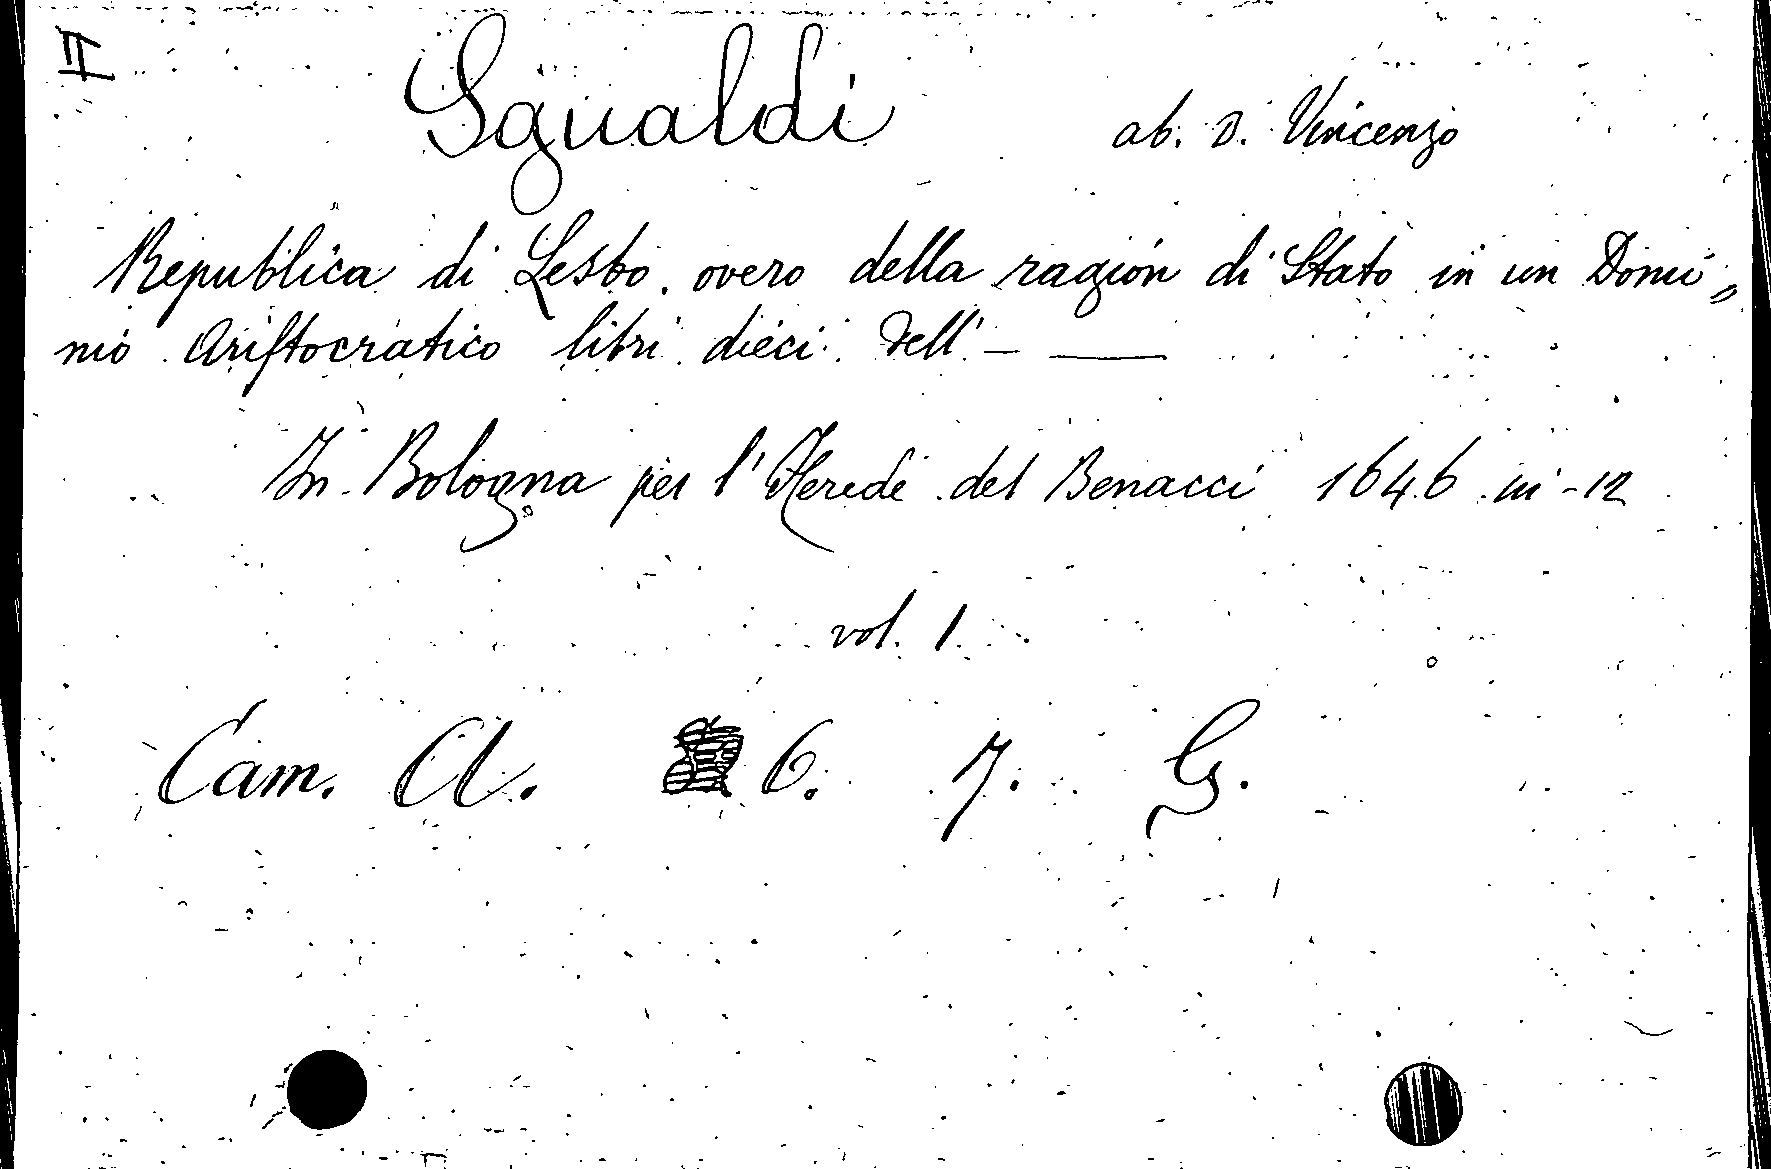 II
Sgualdi ab. D. Vincenzo
Republica di Lesbo, overo della ragion di Stato in un Domi„
nio Aristocratico libri dieci Dell' — ——
In Bologna per l'Herede del Benacci 1646 in-12
vol. 1.
Cam. A. 6. 7. G.